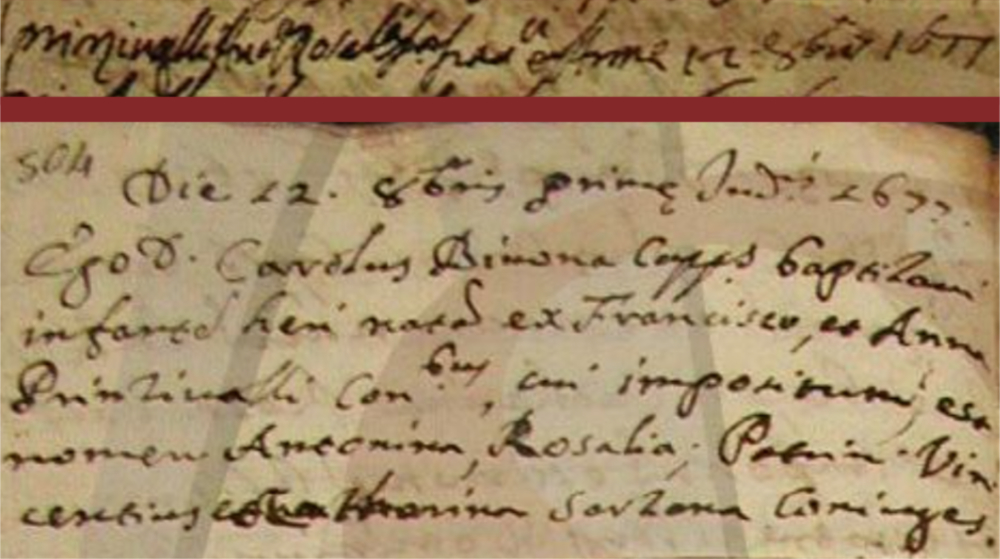 12 8bris 1677
504
Die 12. 8bris prime Indis 1677.
Ego D. Carolus Bivona Capps baptizavi
infanted heri natã ex Francisco, et Anna
Printivalli Conbus, cui impositum est
nomen Antonina, Rosalia; Patrin. Vin
centius et Catharina Sortana Coniuges.